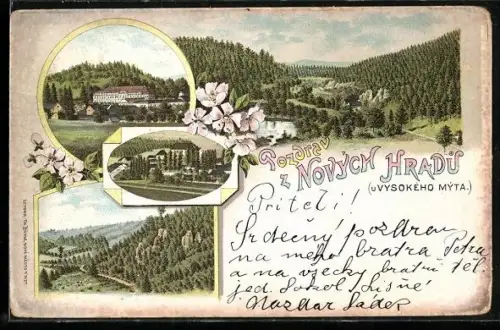 Pozdrav
z Nových Hradů
(u Vysokého Mýta.)
Příteli!
Srdečný pozdrav
na mého bratra Petra
a na všecky bratry těl.
jed. Sokol
Nazdar